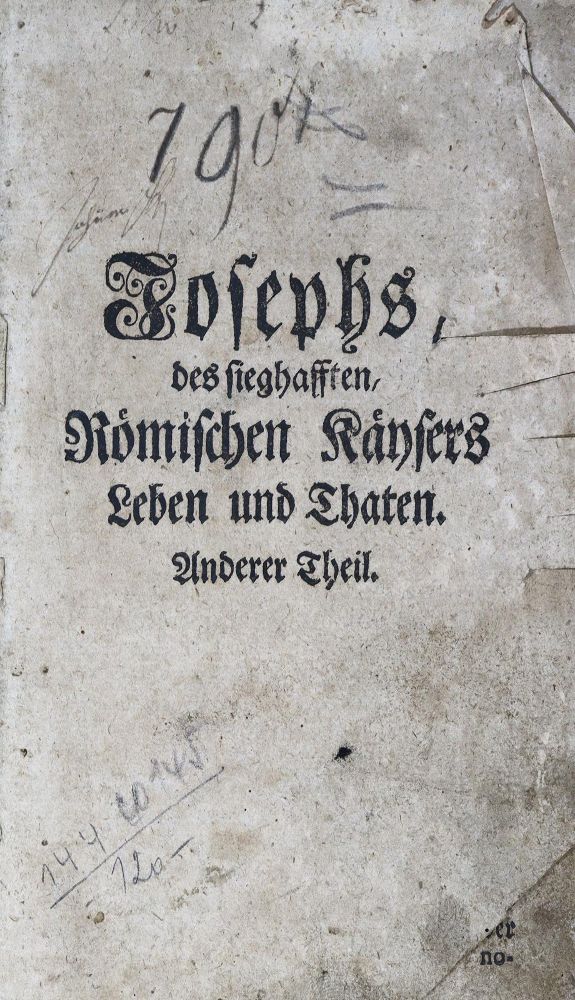 790
Josephs,
des sieghafften,
Römischen Käysers
Leben und Thaten.
Anderer Theil.
120-
er
no-